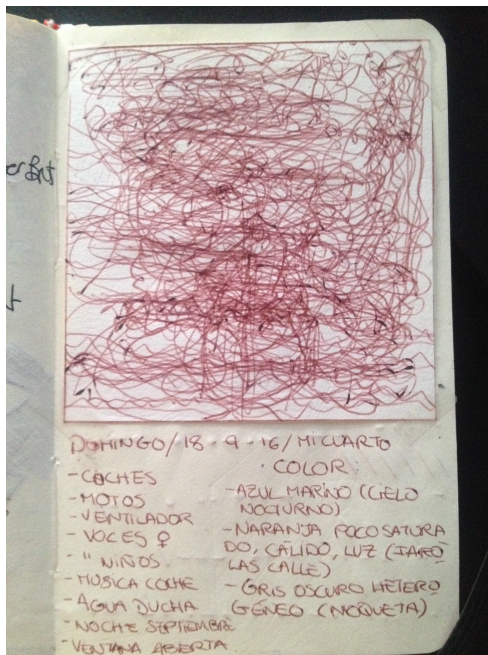 DOMINGO/18-9-16/MI CUARTO
-COCHES
-MOTOS
-VENTILADOR
-VOCES ♀
- " NIÑOS
-MUSICA COCHE
-AGUA DUCHA
-NOCHE SEPTIEMBRE
-VENTANA ABIERTA
· COLOR
-AZUL MARINO (CIELO
NOCTURNO)
-NARANJA POCO SATURA
DO, CÁLIDO, LUZ (
LAS CALLE)
-GRIS OSCURO HETERO
GÉNEO (MOQUETA)